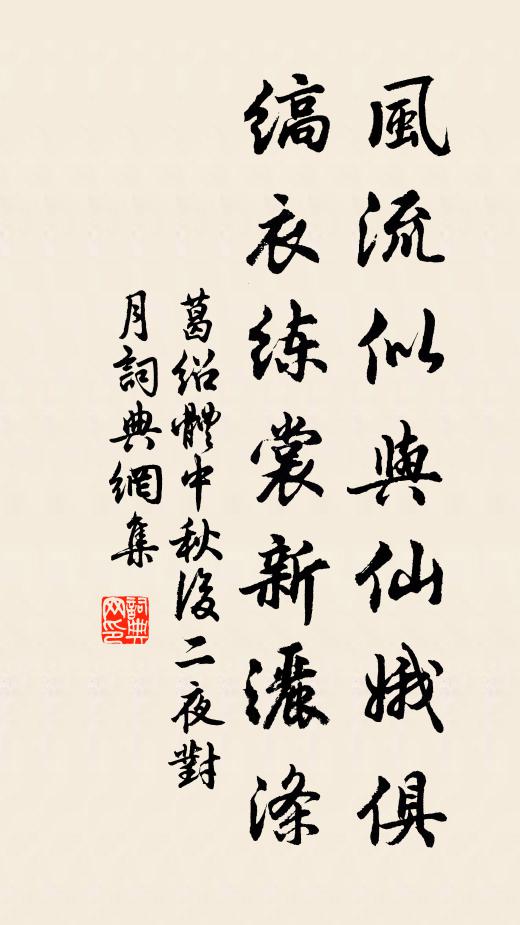 風流似與仙娥俱
縞衣练裳新灑滌
葛绍體中秋後二夜對
月詞典網集
詞典
网印